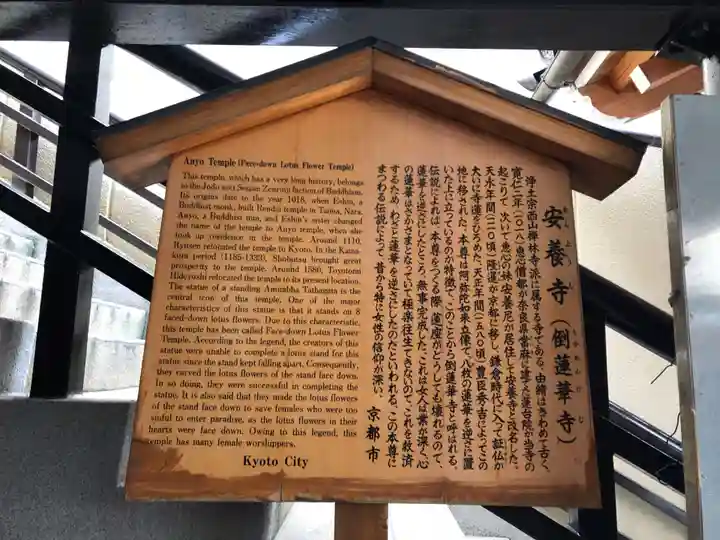 Anyo Temple (Face-down Lotus Flower Temple)
This temple, which has a very long history, belongs
to the Jodo sect Seizan Zenrinji faction of Buddhism.
Its origins date to the year 1018, when Eshin, a
Buddhist monk, built Rendai temple in Taima, Nara.
Anyo, a Buddhist nun, and Eshin's sister changed
the name of the temple to Anyo temple, when she
took up residence in the temple. Around 1110,
relocated the temple to Kyoto. In the Kama-
kura period (1185-1333), Shobutsu brought great
prosperity to the temple. Around 1580, Toyotomi
Hideyoshi relocated the temple to its present location.
The statue of a standing Amitabha Tathagata is the
central icon of this temple. One of the major
characteristics of this statue is that it stands on 8
faced-down lotus flowers. Due to this characteristic,
this temple has been called Face-down Lotus Flower
Temple. According to the legend, the creators of this
statue were unable to complete a lotus stand for this
statue since the stand kept falling apart. Consequently,
they carved the lotus flowers of the stand face down.
In so doing, they were successful in completing the
statue. It is also said that they made the lotus flowers
of the stand face down to save females who were too
sinful to enter paradise, as the lotus flowers in their
hearts were face down. Owing to this legend, this
temple has many female worshippers.
Kyoto City
安養寺（倒蓮華寺）
浄土宗西山禅林寺派に属する寺である。由緒はきわめて古く、
寛仁二年（一〇一八）恵心僧都が奈良県當麻に建てた蓮台院が当寺の
起こりで、次いで恵心の妹安養尼が居住して安養寺と改名した。
天永年間（一一一〇頃）隆暹が京都に移し、鎌倉時代に入って証仏が
大いに寺運をひろめた。天正年間（一五八〇頃）豊臣秀吉によってこの
地に移され、本尊は阿弥陀如来立像で、八枚の蓮華を逆さに置
いた上に立っているのが特徴で、このことから倒蓮華寺と呼ばれる。
伝説によれば、本尊をつくる際、蓮座がどうしても壊れるので、
蓮華を逆さにしたところ、無事完成した。これは女人は業が深く、心
の蓮華はさかさまとなっていて極楽往生できないので、これを救済
するため、わざと蓮華を逆さにしたのだといわれる。この本尊に
まつわる伝説によって、昔から特に女性の信仰が深い。
京都市